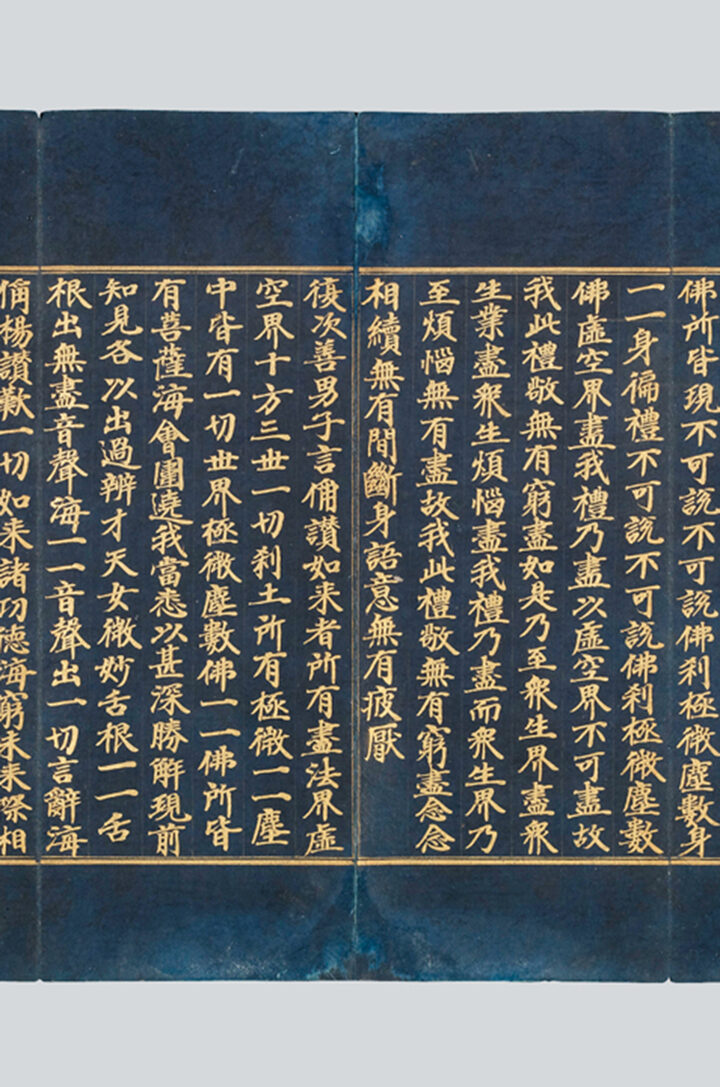 佛所皆現不可說不可說佛刹極微塵數身
一一身徧禮不可說不可說佛刹極微塵數
佛虛空界盡我禮乃盡以虛空界不可盡故
我此禮敬無有窮盡如是乃至衆生界盡衆
生業盡衆生煩惱盡我禮乃盡而衆生界乃
至煩惱無有盡故我此禮敬無有窮盡念念
相續無有間斷身語意無有疲厭
復次善男子言偁讃如来者所有盡法界虛
空界十方三世一切刹土所有極微一一塵
中皆有一切世界極微塵數佛一一佛所皆
有菩薩海會圍遶我當悉以甚深勝解現前
知見各以出過辨才天女微妙舌根一一舌
根出無盡音聲海一一音聲出一切言辭海
偁楊讃歎一切如来諸功德海窮未来際相